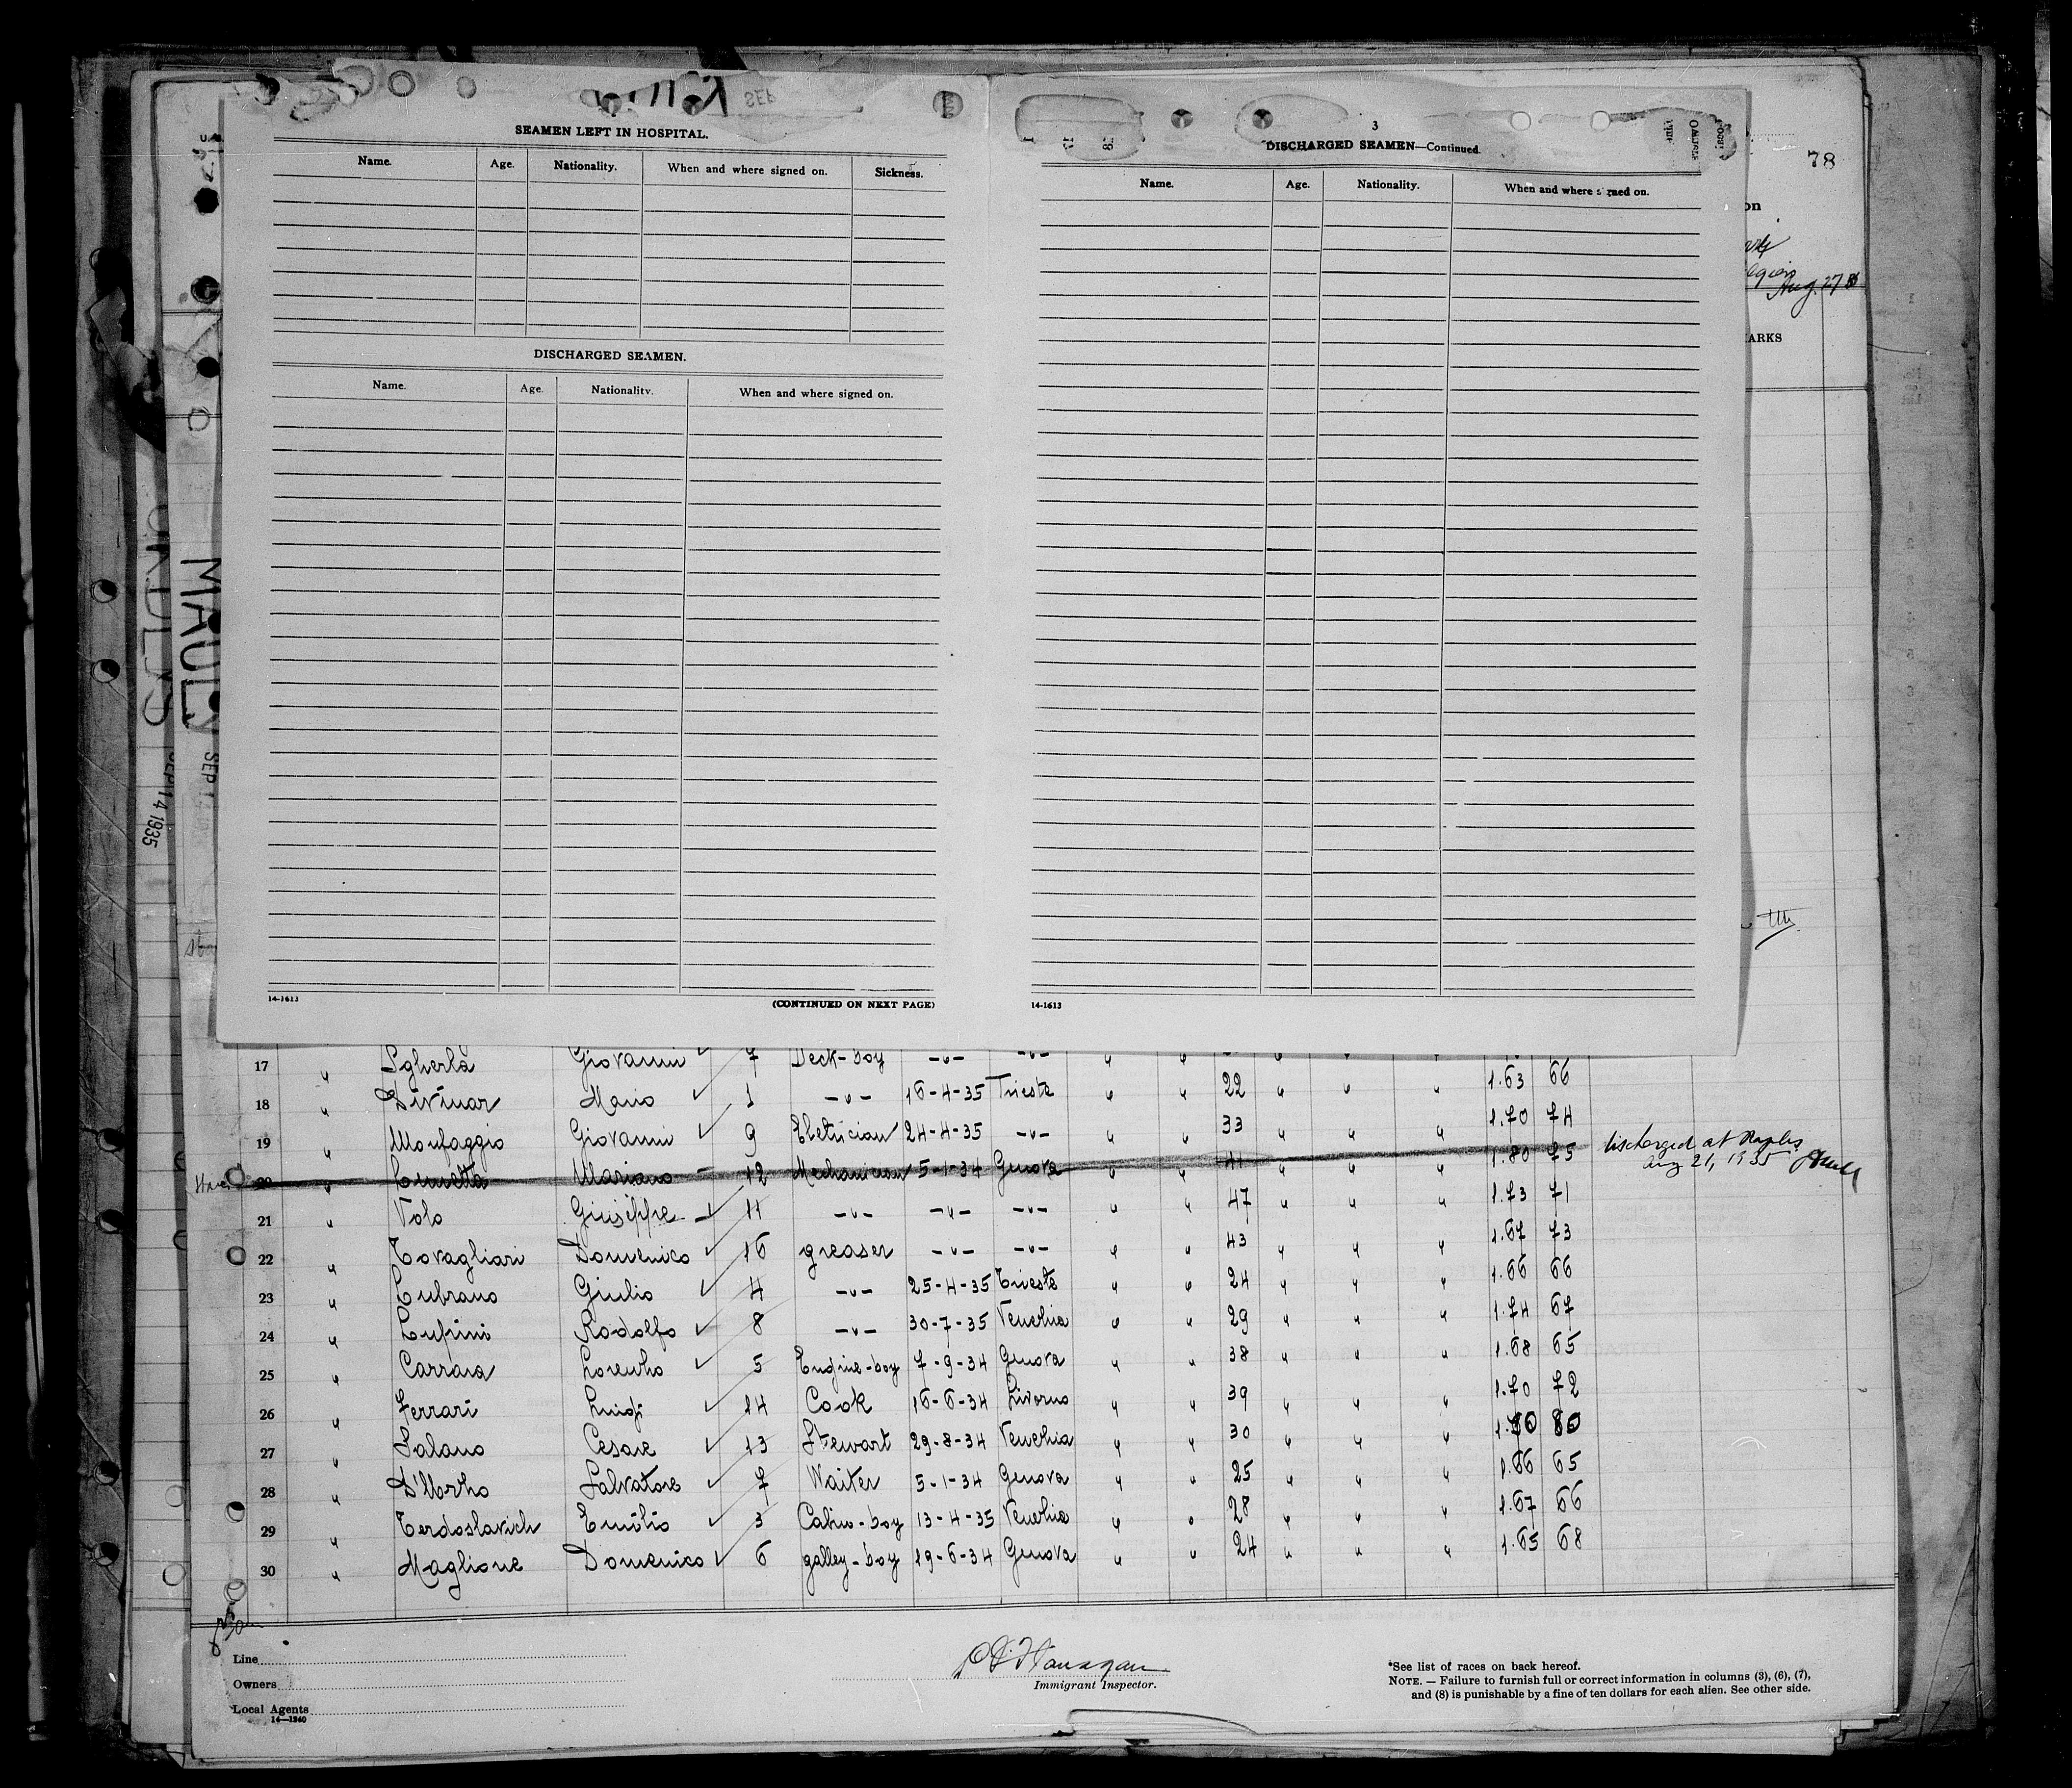 SEAMEN LEFT IN HOSPITAL.
Name. Age. Nationality. When and where signed on. Sickness.
DISCHARGED SEAMEN.
Name. Age. Nationality. When and where signed on.
14-1613 (CONTINUED ON NEXT PAGE)
3
DISCHARGED SEAMEN—Continued
Name. Age. Nationality. When and where signed on.
14-1613
78
on
Aug. 27
ARKS
MAULY
SEP 14 1935
17 " Sgherla Giovanni ✓ 7 Deck-boy -"- -"- " "
18 " Mario ✓ 1 -"- 16-4-35 Trieste " " 22 " " " 1.63 66
19 " Monfaggio Giovanni ✓ 9 Eletrician 24-4-35 -"- " " 33 " " " 1.70 74
20 " Mariano - 12 Mechanician 5-1-34 Genova " " 41 " " " 1.80 75 discharged at Naples
Aug 21, 1935
21 " Volo Giuseppe ✓ 11 -"- -"- -"- " " 47 " " " 1.73 71
22 " Tovagliari Domenico ✓ 16 greaser -"- -"- " " 43 " " " 1.67 73
23 " Cubrano Giulio ✓ 4 -"- 25-4-35 Trieste " " 24 " " " 1.66 66
24 " Lupini Rodolfo ✓ 8 -"- 30-7-35 Venehia " " 29 " " " 1.74 67
25 " Carrara Lorenho ✓ 5 Engine-boy 7-9-34 Genova " " 38 " " " 1.68 65
26 " Ferrari Luigi ✓ 14 Cook 16-6-34 Livorno " " 39 " " " 1.70 72
27 " Salano Cesare ✓ 13 Stewart 29-8-34 Venehia " " 30 " " " 80
28 " Salvatore ✓ 7 Waiter 5-1-34 Genova " " 25 " " " 1.66 65
29 " Terdoslavich Emilio ✓ 3 Cabin-boy 13-4-35 Venehia " " 28 " " " 1.67 66
30 " Maglione Domenico ✓ 6 galley-boy 19-6-34 Genova " " 24 " " " 1.65 68
Line
Owners
Local Agents
14—1240
Immigrant Inspector.
*See list of races on back hereof.
NOTE. — Failure to furnish full or correct information in columns (3), (6), (7),
and (8) is punishable by a fine of ten dollars for each alien. See other side.